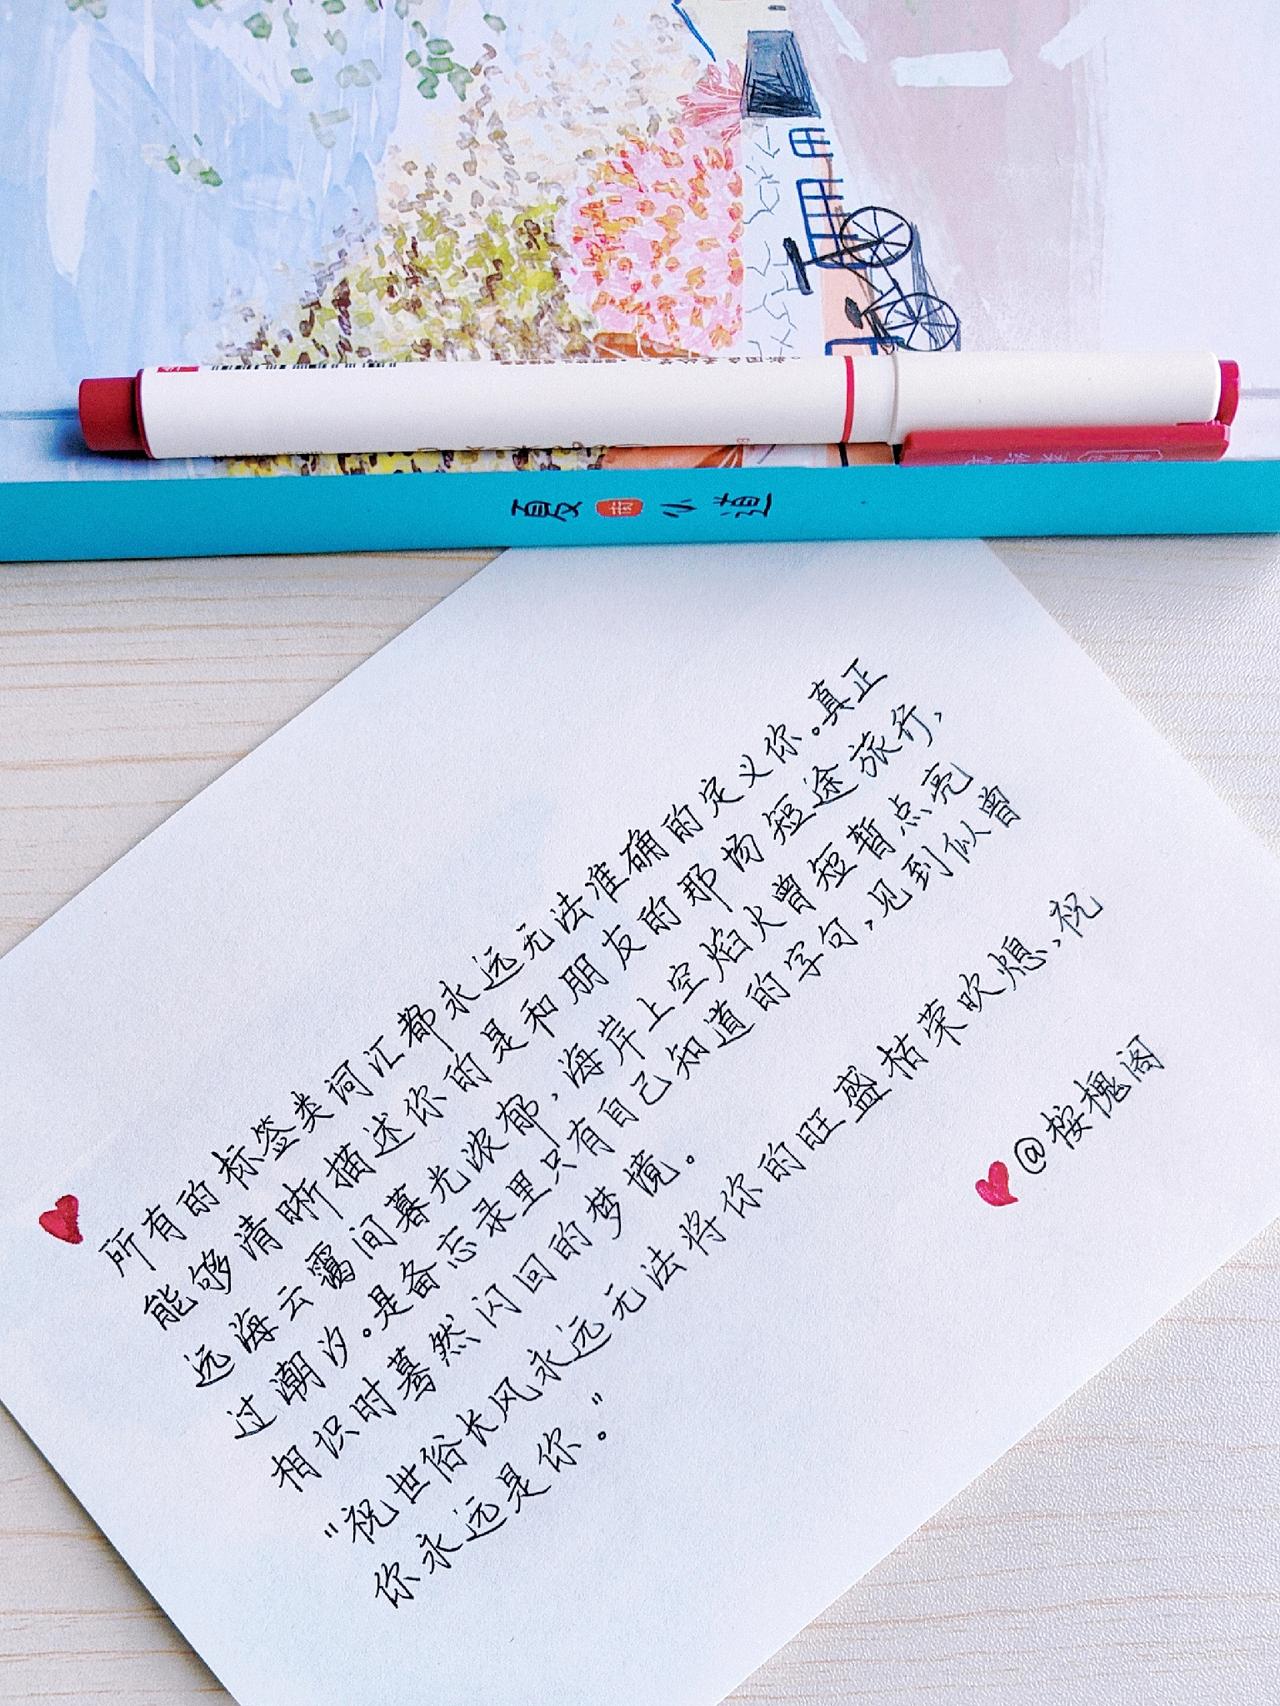 夏 小道
所有的标签类词汇都永远无法准确的定义你。真正
能够清晰描述你的是和朋友的那场短途旅行，
远海云霭间暮光浓郁，海岸上空焰火曾短暂点亮
过潮汐。是备忘录里只有自己知道的字句，见到似曾
相识时蓦然闪回的梦境。
"祝世俗长风永远无法将你的旺盛枯荣吹熄，祝
你永远是你。"
@桉槐阁